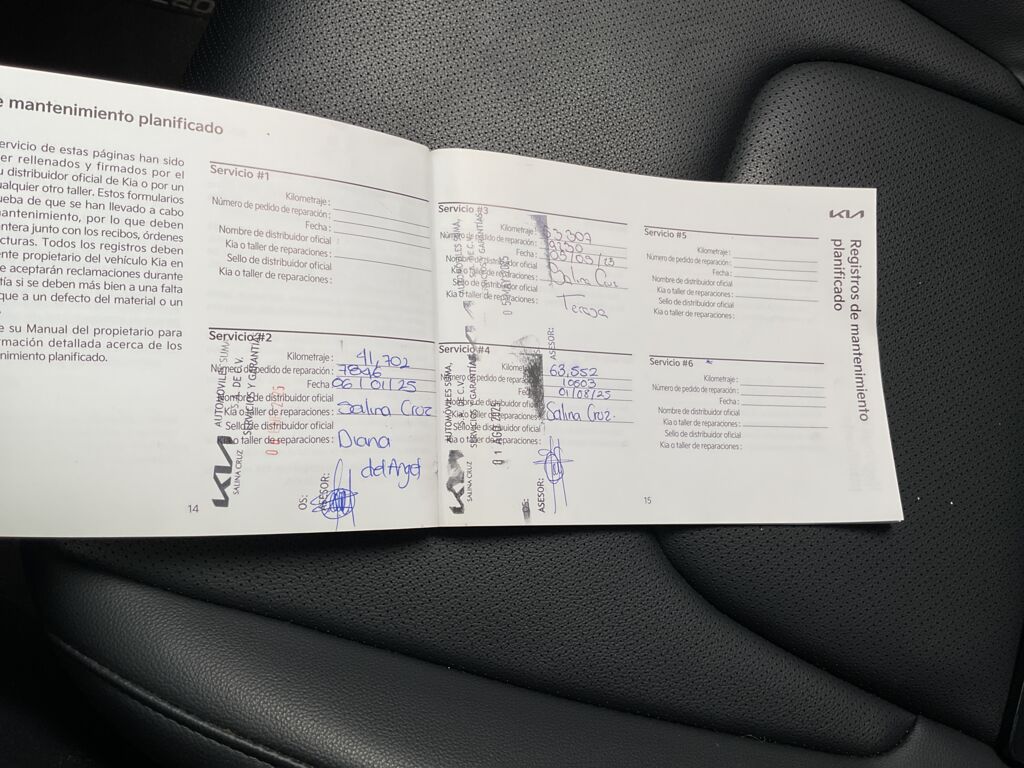 e mantenimiento planificado
ervicio de estas páginas han sido
er rellenados y firmados por el
u distribuidor oficial de Kia o por un
ualquier otro taller. Estos formularios
ueba de que se han llevado a cabo
mantenimiento, por lo que deben
entera junto con los recibos, órdenes
cturas. Todos los registros deben
ente propietario del vehículo Kia en
e aceptarán reclamaciones durante
tía si se deben más bien a una falta
que a un defecto del material o un
e su Manual del propietario para
rmación detallada acerca de los
nimiento planificado.
Servicio #1
Kilometraje :
Número de pedido de reparación :
Fecha :
Nombre de distribuidor oficial
Kia o taller de reparaciones :
Sello de distribuidor oficial
Kia o taller de reparaciones :
Servicio #2
Kilometraje : 41,702
Número de pedido de reparación : 7846
Fecha : 06/01/25
Nombre de distribuidor oficial
Kia o taller de reparaciones : Salina Cruz
Sello de distribuidor oficial
o taller de reparaciones : Diana
del Angel
KIA
SALINA CRUZ
AUTOMOVILES SUMA,
S. DE C.V.
SERVICIOS Y GARANTIAS
OS:
ASESOR:
14
Servicio #3
Kilometraje : 53307
Número de pedido de reparación : 9750
Fecha : 05/05/25
Nombre de distribuidor oficial
Kia o taller de reparaciones : Salina Cruz
Sello de distribuidor oficial
Kia o taller de reparaciones : Teresa
05 MAY 2025
ASESOR:
Servicio #4
Kilometraje : 63,552
Número de pedido de reparación : 10603
Fecha : 01/08/25
Nombre de distribuidor oficial
Kia o taller de reparaciones : Salina Cruz.
Sello de distribuidor oficial
Kia o taller de reparaciones :
KIA
SALINA CRUZ
AUTOMOVILES SUMA,
S. DE C.V.
SERVICIOS Y GARANTIAS
01 AGO 2025
OS:
ASESOR:
Servicio #5
Kilometraje :
Número de pedido de reparación :
Fecha :
Nombre de distribuidor oficial
Kia o taller de reparaciones :
Sello de distribuidor oficial
Kia o taller de reparaciones :
Servicio #6
Kilometraje :
Número de pedido de reparación :
Fecha :
Nombre de distribuidor oficial
Kia o taller de reparaciones :
Sello de distribuidor oficial
Kia o taller de reparaciones :
15
KIA
Registros de mantenimiento
planificado